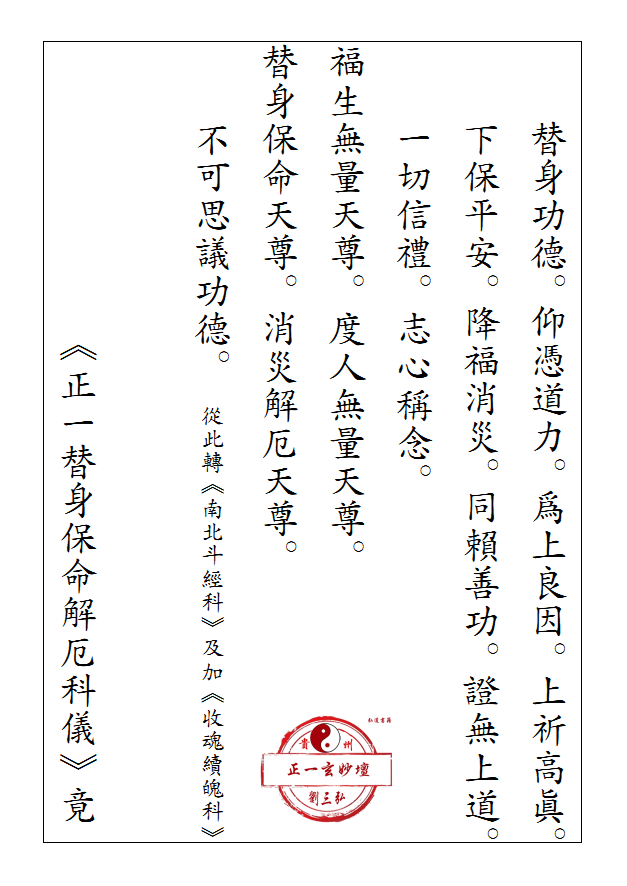 替身功德。仰憑道力。爲上良因。上祈高眞。
下保平安。降福消災。同賴善功。證無上道。
一切信禮。志心稱念。
福生無量天尊。度人無量天尊。
替身保命天尊。消災解厄天尊。
不可思議功德。從此轉《南北斗經科》及加《收魂續魄科》
《正一替身保命解厄科儀》竟
弘道書籍
貴州
正一玄妙壇
劉三弘